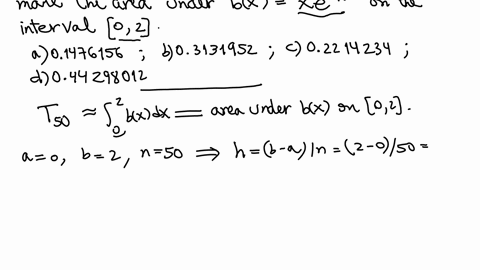 the area under b(x) = xe on the
interval [0,2].
a) 0.1476156 ; b) 0.3131952 ; c) 0.2214234 ;
d) 0.44298012
T50 ≈ ∫₀² b(x)dx = area under b(x) on [0,2].
a=0, b=2, n=50 ⟹ h=(b-a)/n=(2-0)/50=